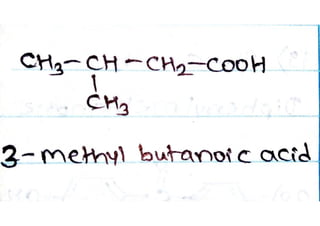 CH₃-CH-CH₂-COOH
|
CH₃
3-methyl butanoic acid